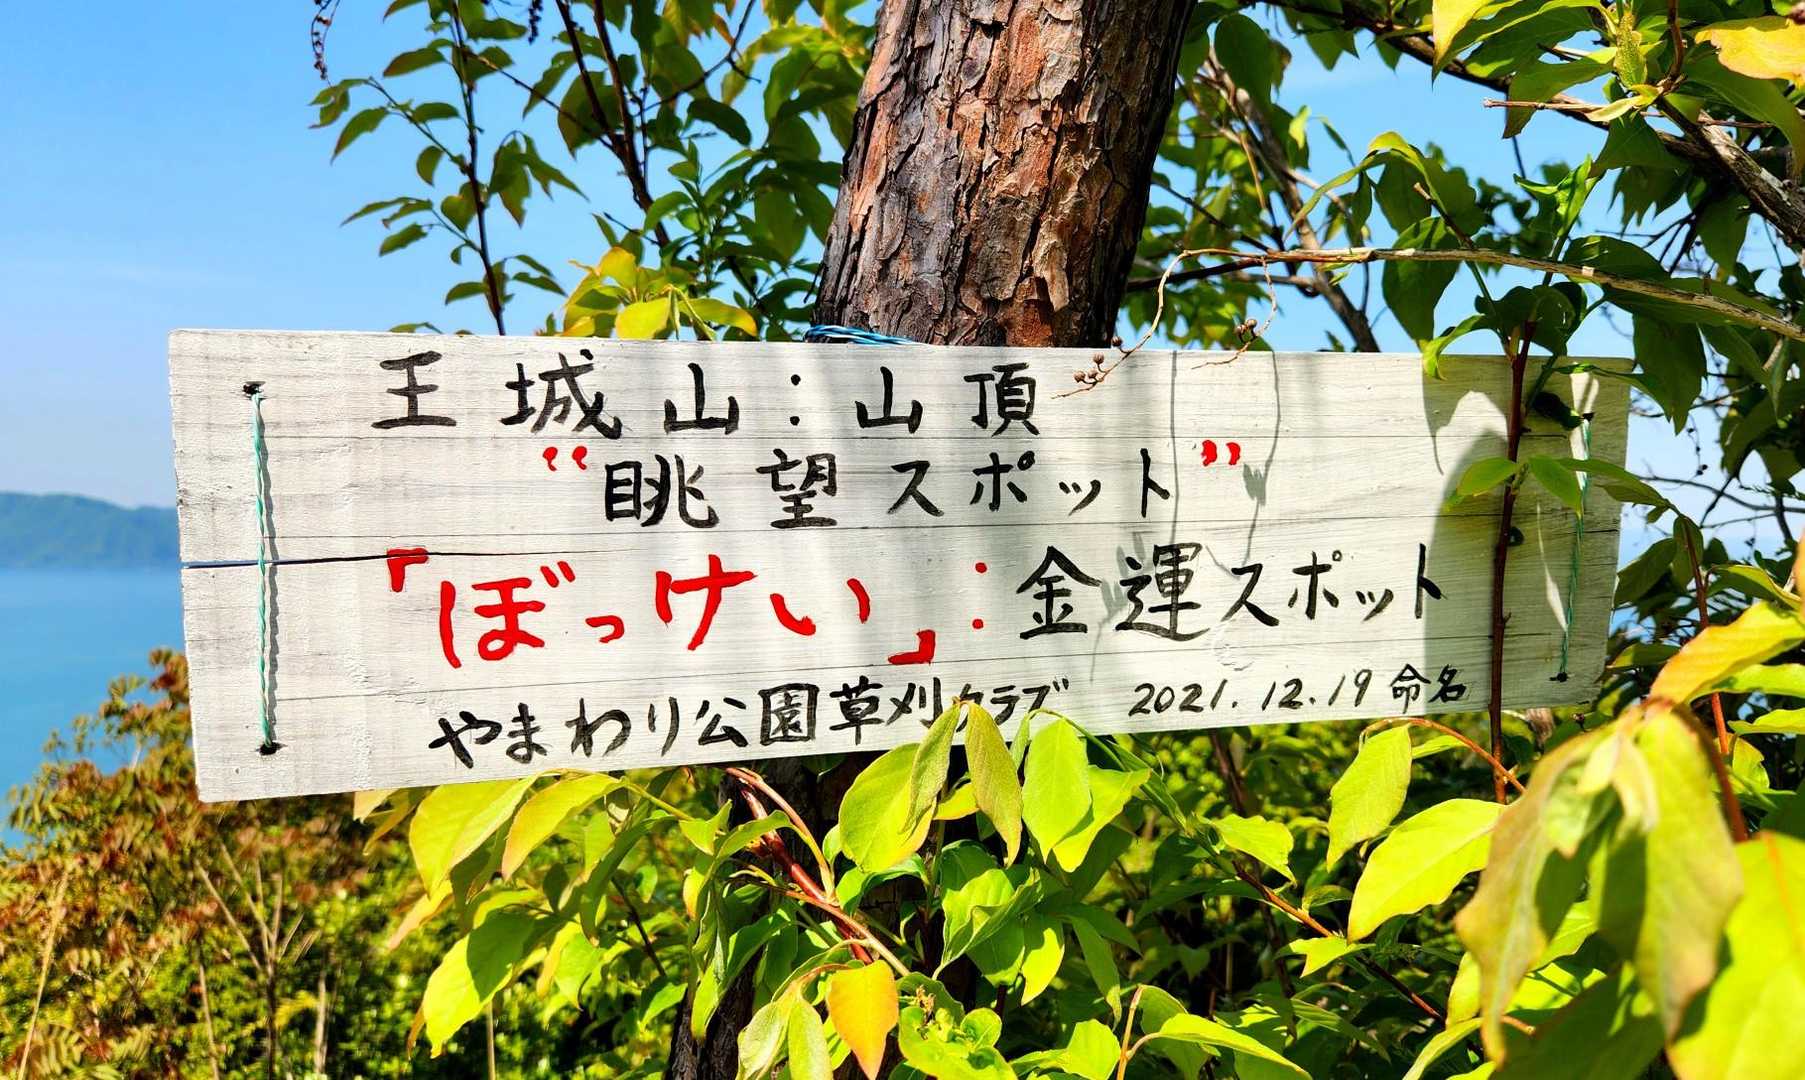 王城山：山頂
“眺望スポット”
「ぼっけい」：金運スポット
やまわり公園草刈クラブ 2021.12.19 命名